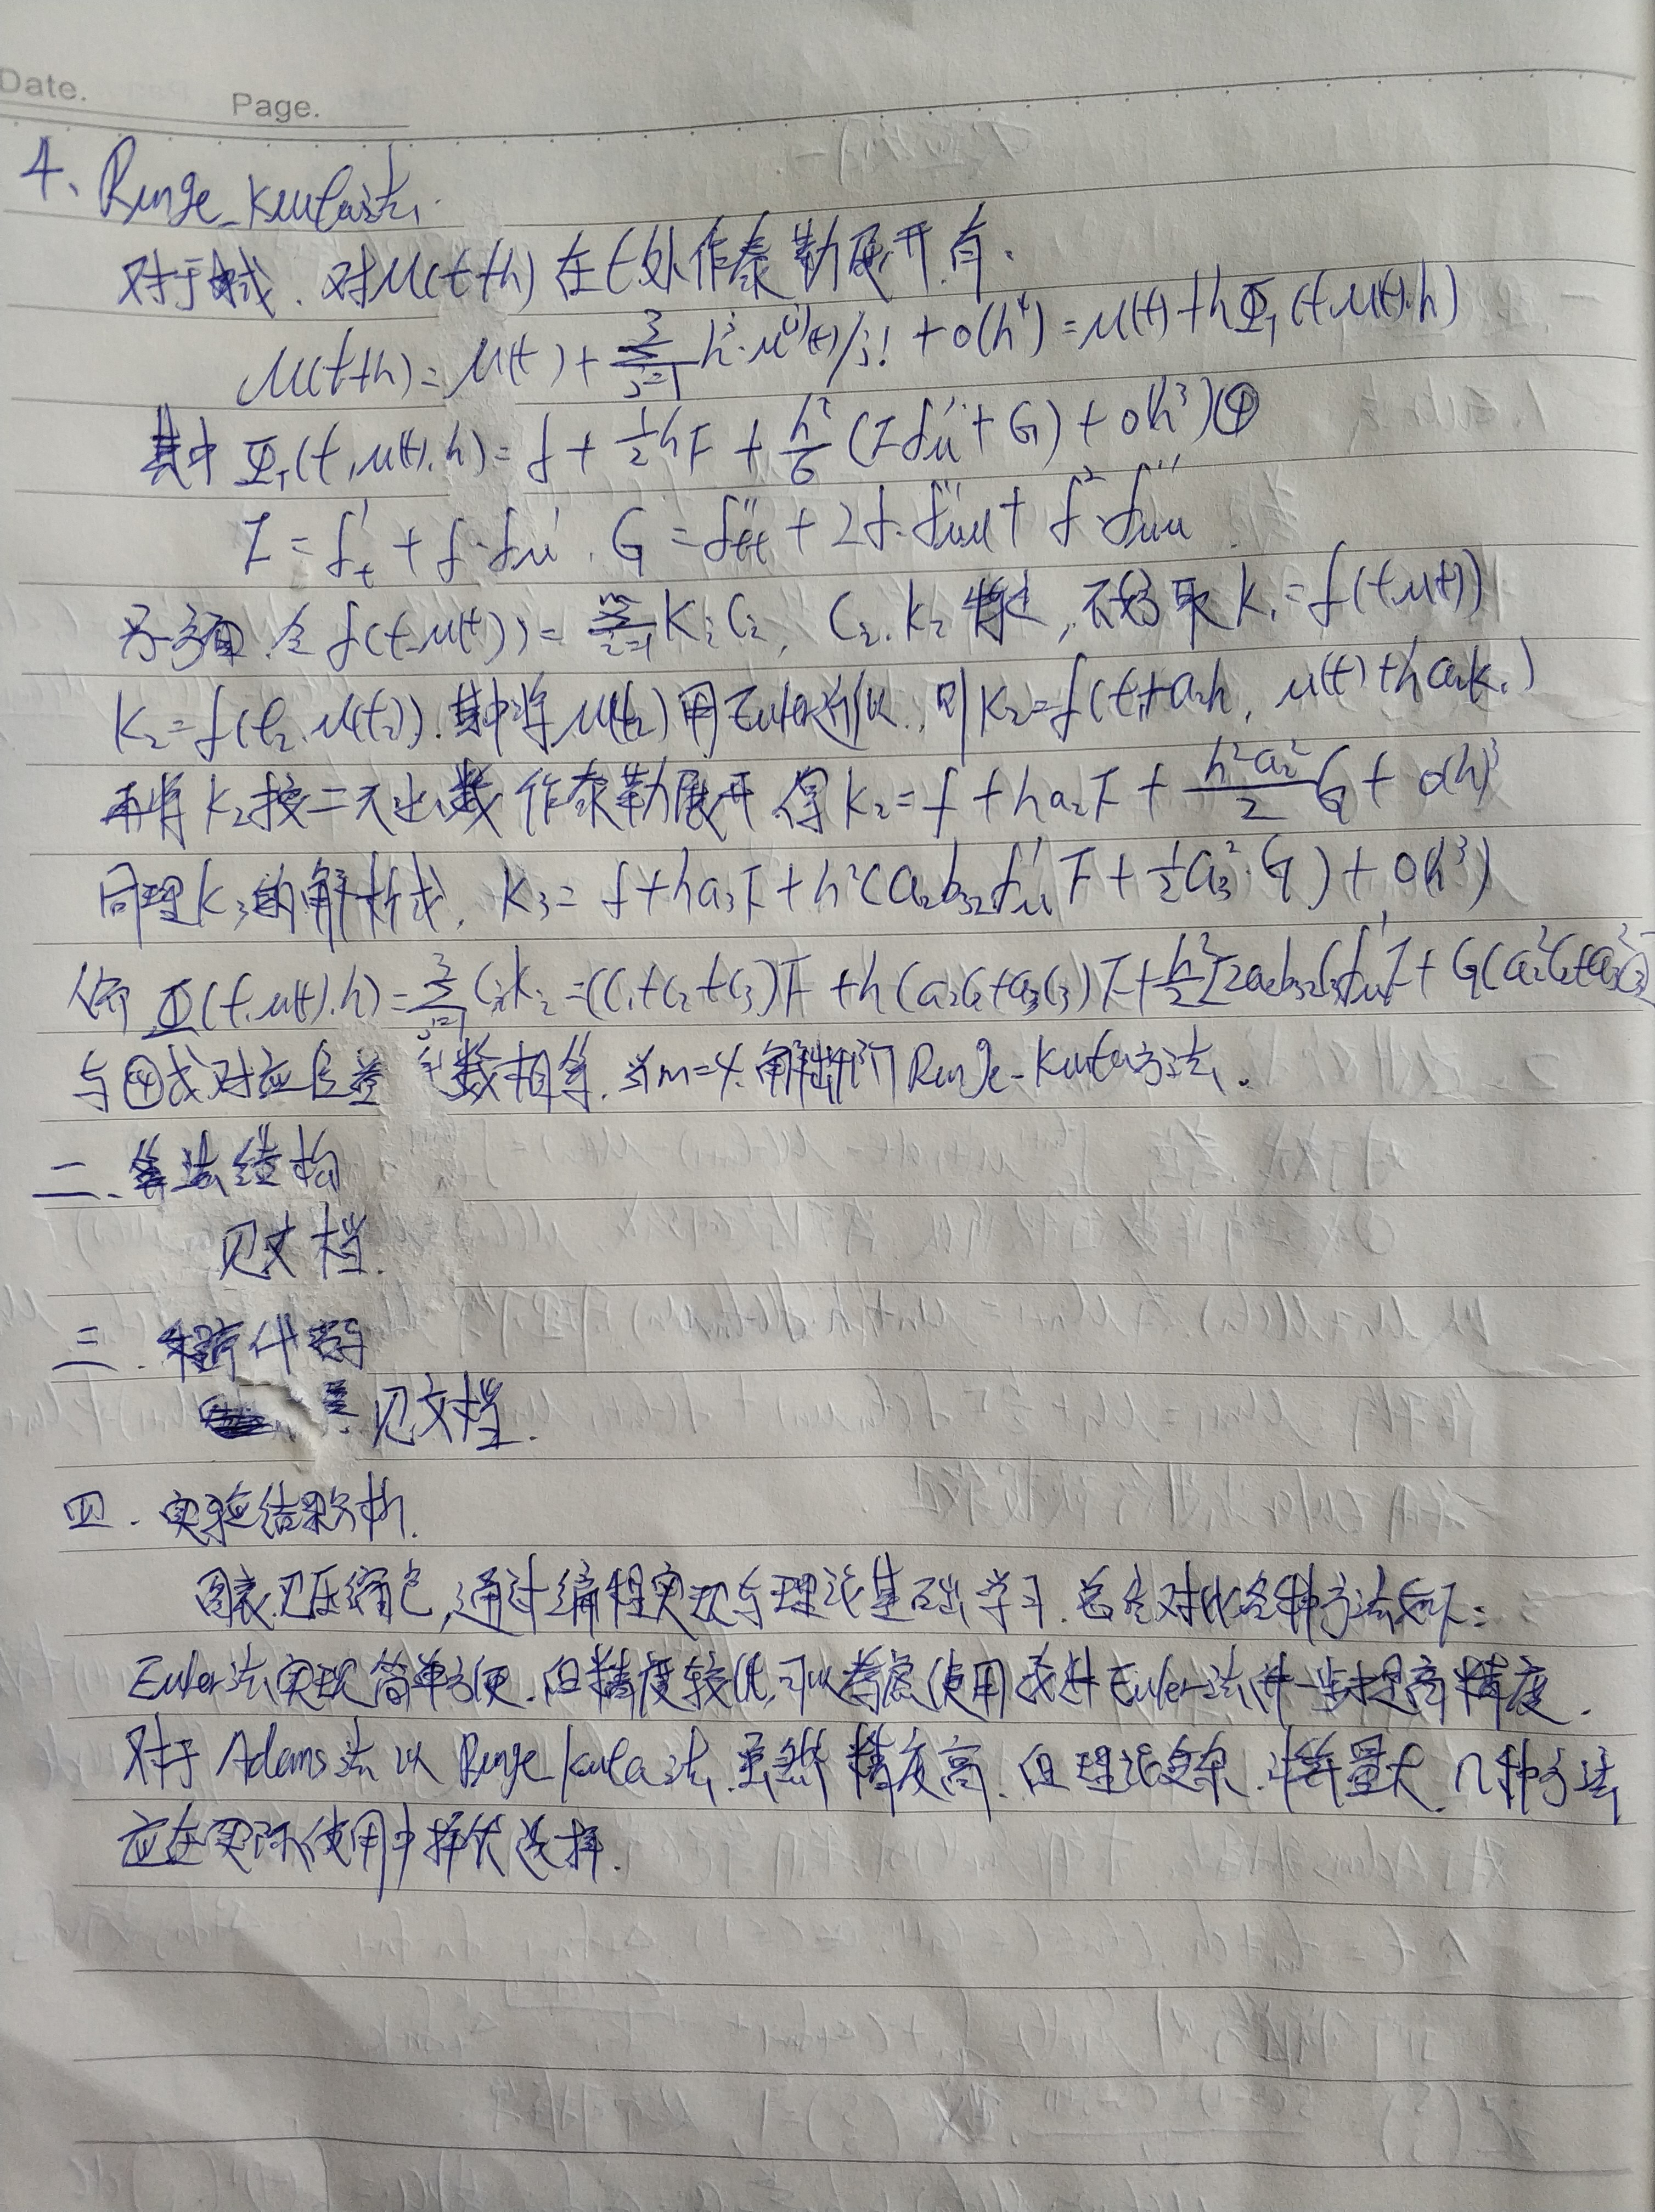 Date.
Page.
4、Runge-Kuta法.
对于*式. 对u(t+h)在t处作泰勒展开.有.
u(t+h)=u(t)+∑_{j=1}^{3} h^j·u^{(j)}(t)/j!+o(h^4)=u(t)+hΦ_T(t,u(t),h)
其中Φ_T(t,u(t),h)=f+1/2hF+h²/6(Ff'_u+G)+o(h³)④
F=f'_t+f·f'_u. G=f''_tt+2f·f''_tu+f²·f''_uu
令f(t,u(t))=∑_{i=1}^{m}K_iC_i, 不妨取K_1=f(t,u(t))
K_2=f(t_2,u(t_2)).其中将u(t_2)用Euler近似.则K_2=f(t+a_2h, u(t)+ha_2k_1)
再将K_2按二元函数作泰勒展开得K_2=f+ha_2F+h²a_2²/2 G+o(h)³
同理K_3的解析式. K_3=f+ha_3F+h²(a_2b_32f'_uF+1/2a_3²·G)+o(h³)
Φ(t,u(t),h)=∑_{i=1}^{3}C_iK_i=(C_1+C_2+C_3)F+h(a_2C_2+a_3C_3)F+h²/2[2a_2b_32C_3f'_uF+G(a_2²C_2+a_3²C_3)
与④式对应系数相等.当m=4.解出四阶Runge-Kuta方法.
二.算法结构
见文档.
三.程序代码
见文档.
四.实验结果分析.
图表见压缩包,通过编程实现与理论基础学习.总结对比各种方法如下:
Euler法实现简单方便.但精度较低,可以考虑使用改进Euler法进一步提高精度.
对于Adams法以Runge Kuta法.虽然精度高.但理论复杂.计算量大.几种方法
应在实际使用中择优选择.